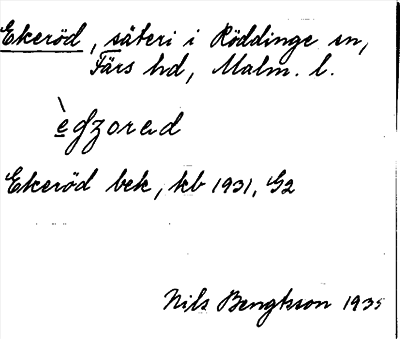 Ekeröd, säteri i Röddinge sn,
Färs hd, Malm. l.
Ekeröd bek, kb 1931, G2
Nils Bengtsson 1935